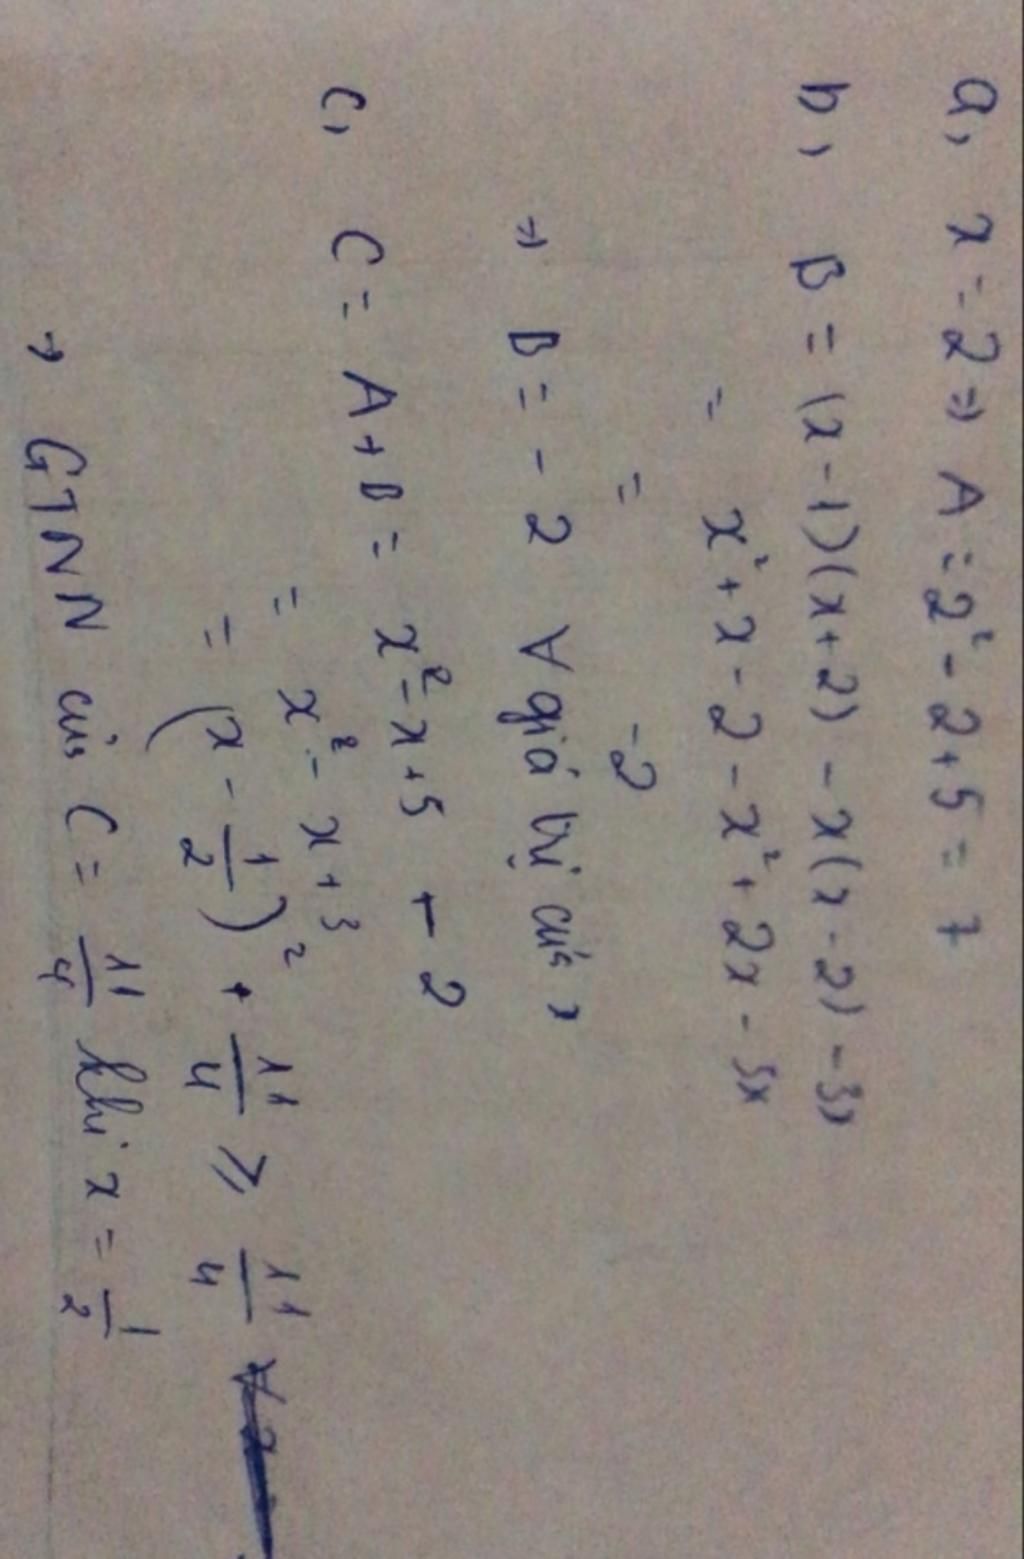 a, x = 2 => A = 2² - 2 + 5 = 7
b, B = (x - 1)(x + 2) - x(x - 2) - 3x
= x² + x - 2 - x² + 2x - 3x
= -2
=> B = -2 ∀ giá trị của x
c, C = A + B = x² - x + 5 - 2
= x² - x + 3
= (x - 1/2)² + 11/4 ≥ 11/4
→ GTNN của C = 11/4 khi x = 1/2